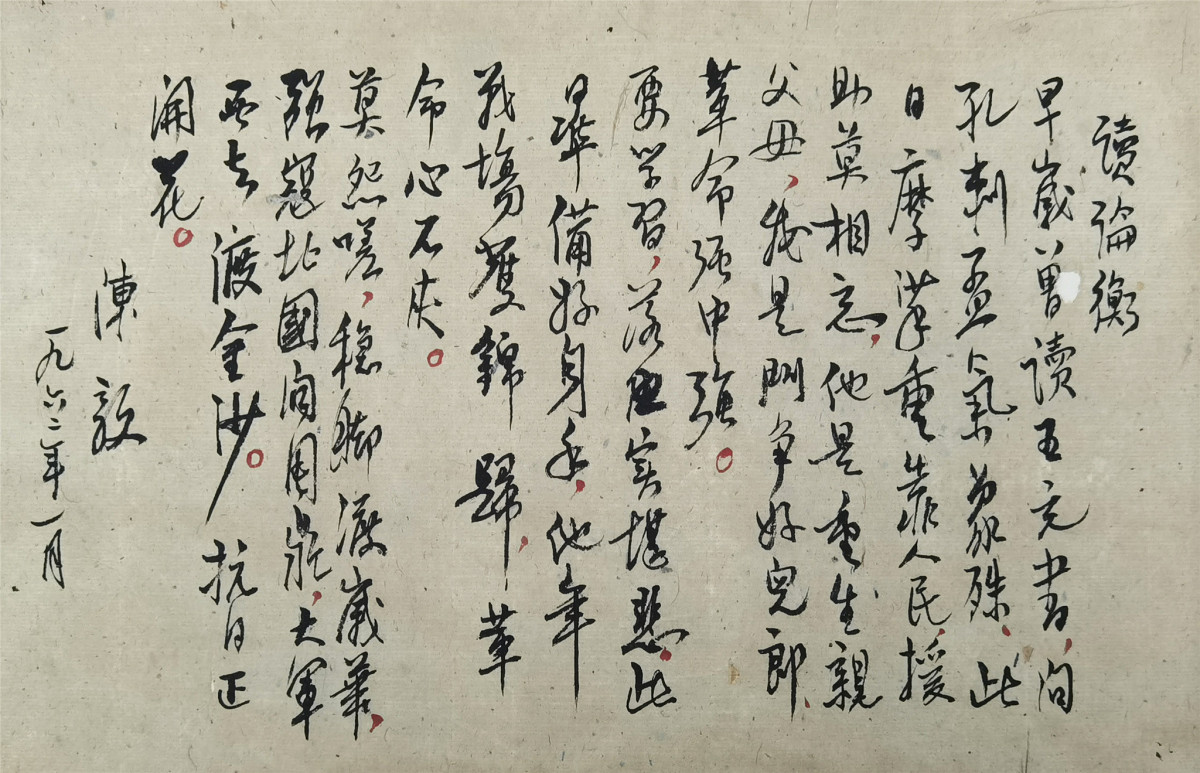 讀論衡
早歲曾讀五充書，問
孔刺孟氣象殊，此
日摩挲重靠人民，援
助莫相忘，他是重生親
父母，我是鬥争好兒郎，
革命强中强。
要学習，落後实堪悲，此
日準備好身手，他年
戰場獲錦歸，革
命心不灰。
莫怨嗟，穩腳渡歲華，
强寇北國向困崩，大軍
西去渡金沙。抗日正
開花。
陳毅
一九六二年一月